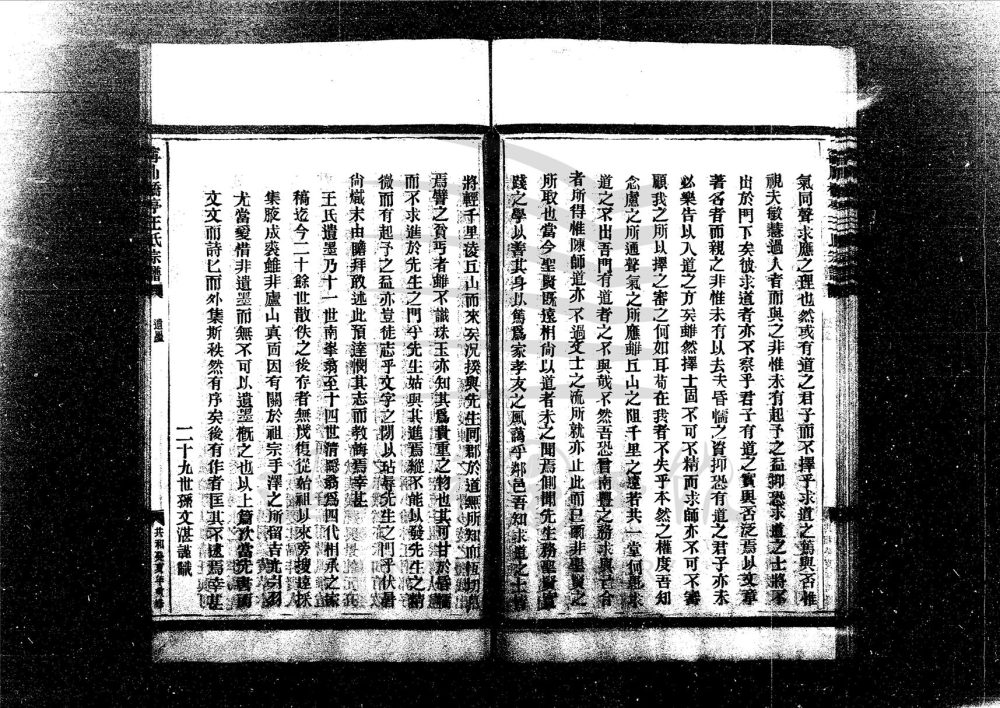 氣同聲求應之理也然或有道之君子而不擇乎求道之篤與否惟
視夫敏慧過人者而與之非惟未有起予之益抑恐求道之士將不
出於門下矣彼求道者亦不察乎君子有道之實與否泛焉以文章
著名者而親之非惟未有以去夫昏懦之資抑恐有道之君子亦未
必樂告以入道之方矣雖然擇士固不可不精而求師亦不可不審
顧我之所以擇之審之何如耳苟在我者不失乎本然之權度吾知
念慮之所通聲氣之所應雖丘山之阻千里之遠若共一堂何
道之不出吾門有道者之不與哉不然吾恐曾南豐之務求與
者所得惟陳師道亦不過文士之流所就亦止此而已爾非聖賢之
所取也當今聖賢既遠相尚以道者未之聞焉側聞先生務聖賢實
踐之學以善其身以篤爲家孝友之風藹乎鄰邑吾知求道之士
將輕千里陵丘山而來矣況揆與先生同郡於道無所知而恆切
焉譬之貧丐者雖不識珠玉亦知其爲貴重之物也其可甘於
而不求進於先生之門乎先生姑與其進焉縱不能以發先生之精
微而有起予之益亦豈徒志乎文字之閒以玷辱先生之門乎伏暑
尙熾末由瞻拜敢述此預達憫其志而教誨焉幸甚
王氏遺墨乃十一世南峯翁至十四世清翁爲四代相承之
稿迄今二十餘世散佚之後存者無幾復從始祖以來旁搜遠採
集腋成裘雖非廬山真面因有關於祖宗手澤之所留吉光
尤當愛惜非遺墨而無不可以遺墨槪之也以上篇次當先書而
文文而詩匕而外集斯秩然有序矣後有作者匡其不逮焉幸甚
二十九世孫文湛謹識
橋亭王氏宗譜
遺墨
共和